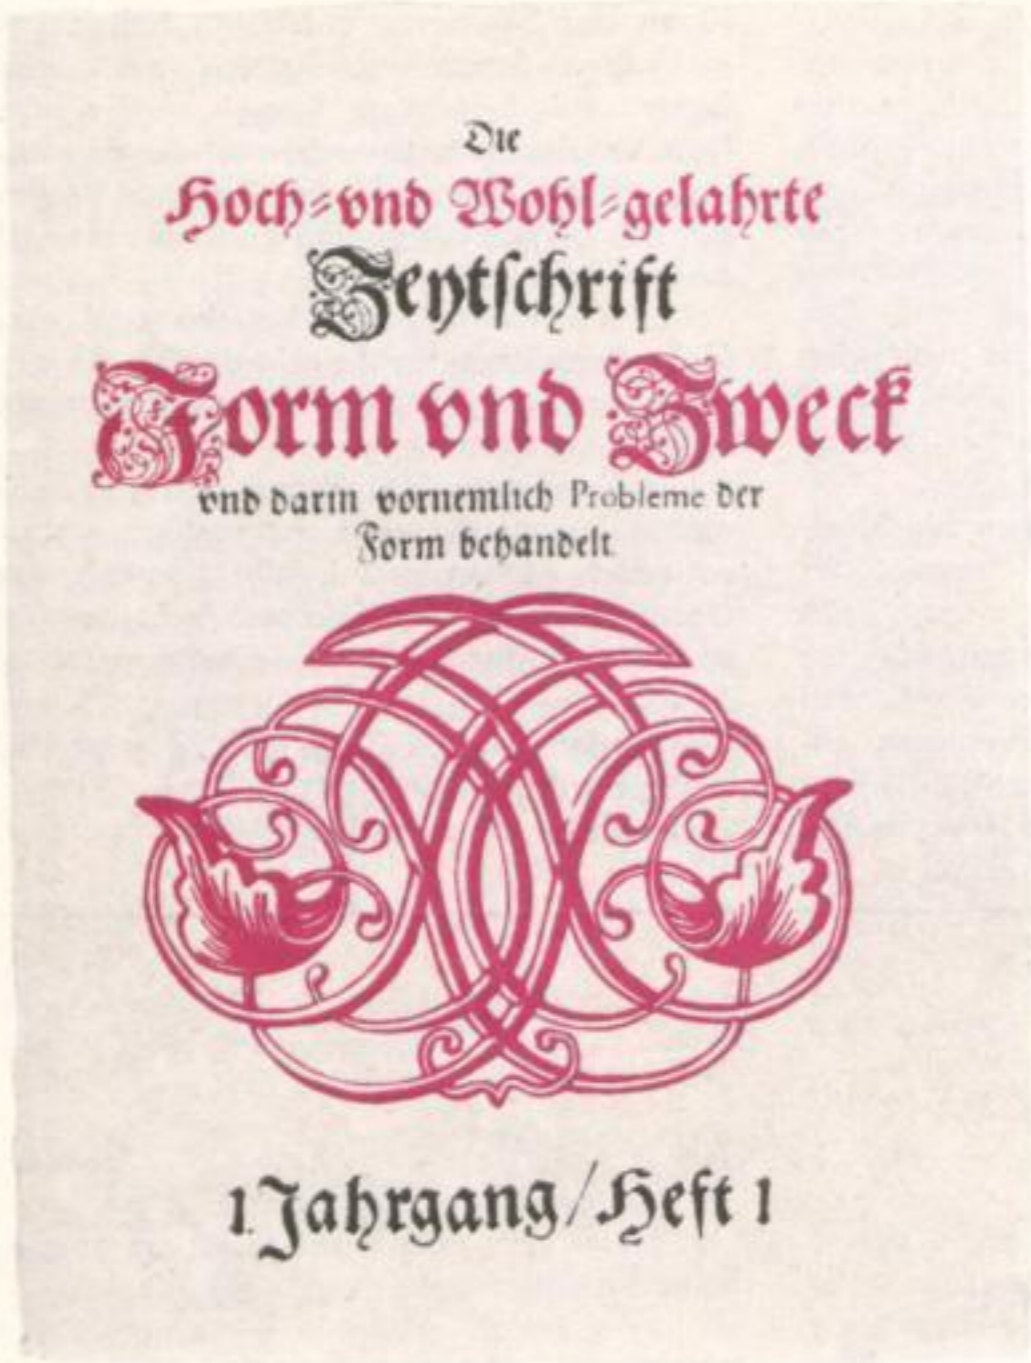 Die
Hoch-vnd Wohl-gelahrte
Zeytschrift
Form vnd Zweck
vnd darin vornemlich Probleme der
Form behandelt
1. Jahrgang/Heft 1